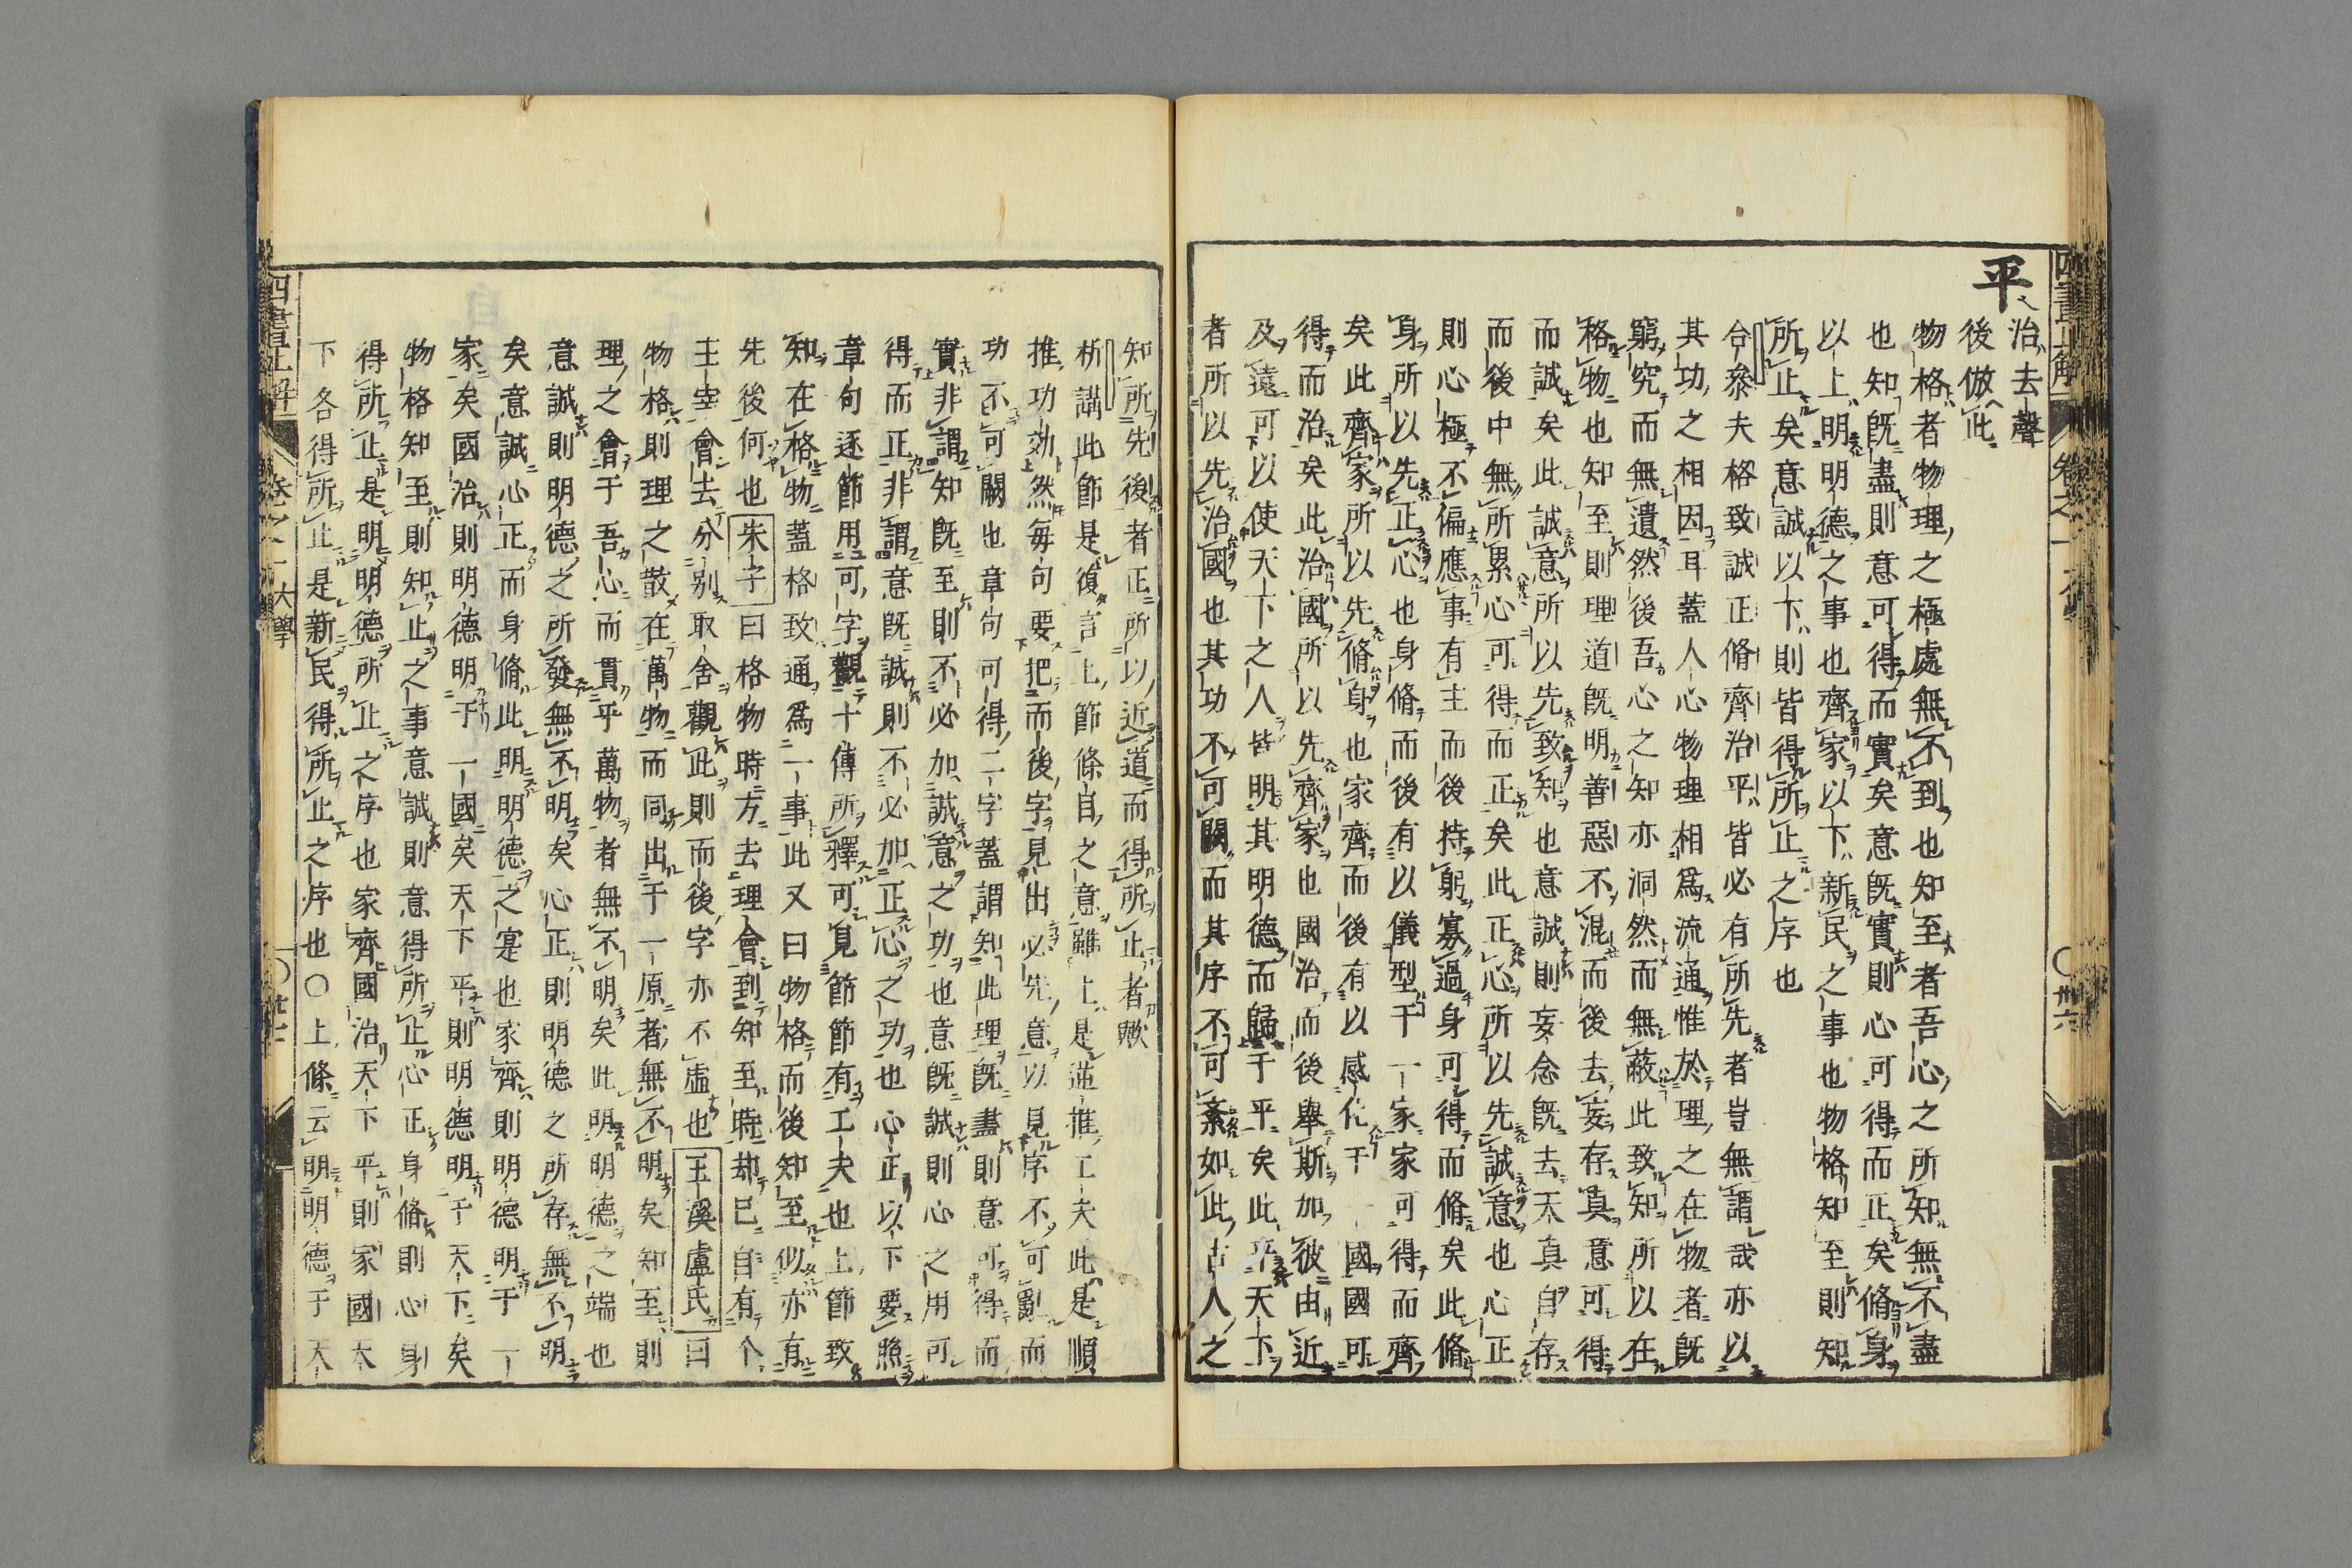 平
治去聲
後倣此
物格者物理之極處無不到也知至者吾心之所知無不盡
也知既盡則意可得而實矣意既實則心可得而正矣脩身
以上明明德之事也齊家以下新民之事也物格知至則知
所止矣意誠以下則皆得所止之序也
合參夫格致誠正脩齊治平皆必有所先者豈無謂哉亦以
其功之相因耳蓋人心物理相爲流通惟於理之在物者既
窮究而無遺然後吾心之知亦洞然而無蔽此致知所以在
格物也知至則理道既明善惡不混而後去妄存真意可得
而誠矣此誠意所以先致知也意誠則妄念既去天真自存
而後中無所累心可得而正矣此正心所以先誠意也心正
則心極不偏應事有主而後持躬寡過身可得而脩矣此脩
身所以先正心也身脩而後有以儀型于一家家可得而齊
矣此齊家所以先脩身也家齊而後有以感化于國國可
得而治矣此治國所以先齊家也國治而後舉斯加彼由近
及遠可以使天下之人皆明其明德而歸于平矣此平天下
者所以先治國也其功不可闕而其序不可紊如此古人之
知所先後者正所以近道而得所止者歟
析講此節是復言上節條目之意雖上是逆推工夫此是順
推功效然每句要把而後字見出必先意以見序不可亂而
功不可闕也章句可得二字蓋謂知此理既盡則意可得而
實非謂知既至則不必加誠意之功也意既誠則心之用可
得而正非謂意既誠則不必加正心之功也心正以下要照
章句逐節用可字觀十傳所釋可見節節有工夫也上節致
知在格物蓋格致通爲一事此又曰物格而後知至似亦有
先後何也朱子曰格物時方去理會到知至時却已自有个
主宰會去分别取舍觀此則而後字亦不虛也玉溪盧氏曰
物格則理之散在萬物而同出于一原者無不明矣知至則
理之會于吾心而貫乎萬物者無不明矣此明明德之端也
意誠則明德之所發無不明矣心正則明德之所存無不明
矣意誠心正而身脩此明明德之寔也家齊則明德明于一
家矣國治則明德明于一國矣天下平則明德明于天下矣
物格知至則知止之事意誠則意得所止心正身脩則心身
得所止是明明德所止之序也家齊國治天下平則家國天
下各得所止是新民得所止之序也〇上條云明明德于天
四書正解
卷之一
大學